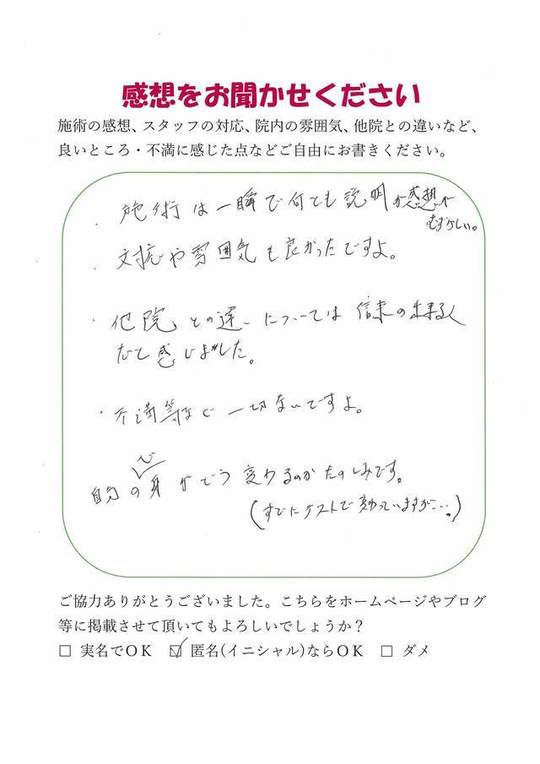 感想をお聞かせください
施術の感想、スタッフの対応、院内の雰囲気、他院との違いなど、
良いところ・不満に感じた点などご自由にお書きください。
・施術は一瞬で何とも説明か感想が
むずかしい。
・対応や雰囲気も良かったですよ。
・他院との違いについては信来の出来る人
だと感じました。
・不満等など一切ないですよ。
自分の心身がどう変わるのかたのしみです。
(すでにテストで変わっていますが…。)
ご協力ありがとうございました。こちらをホームページやブログ
等に掲載させて頂いてもよろしいでしょうか？
□ 実名でＯＫ ☑ 匿名(イニシャル)ならＯＫ □ ダメ